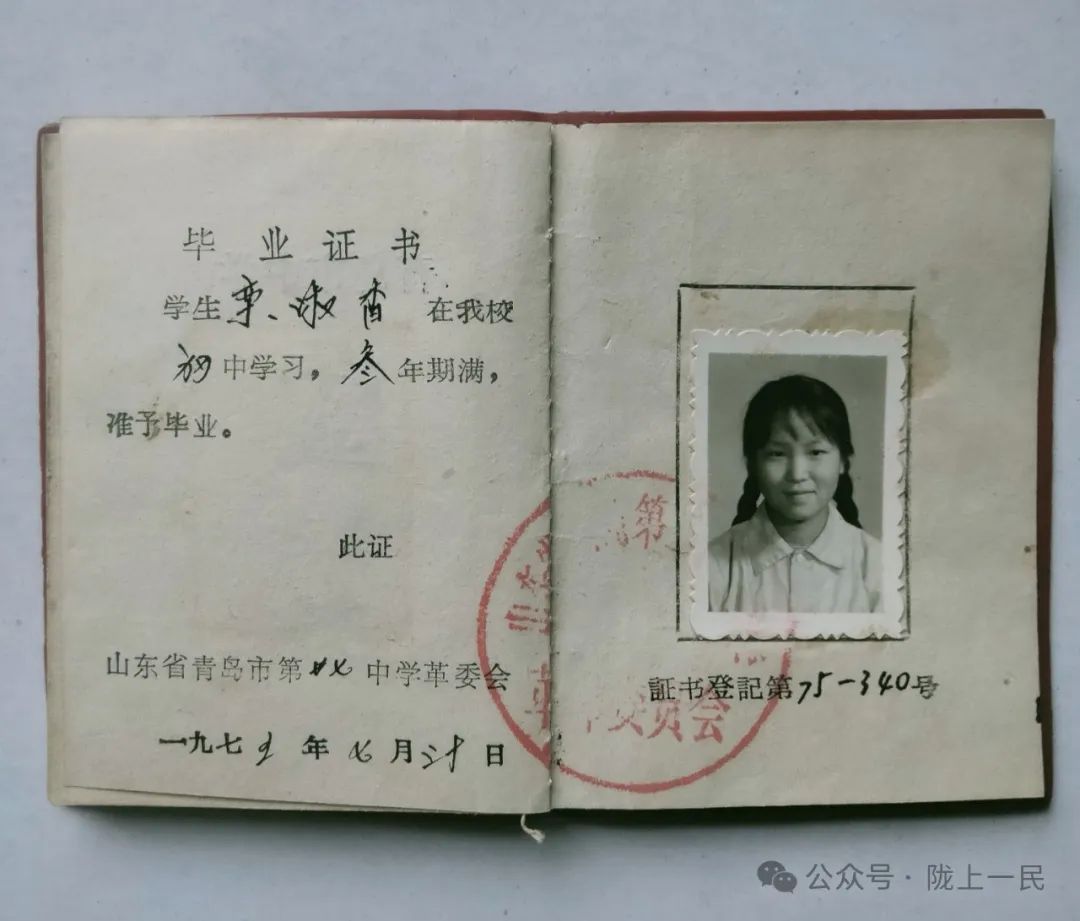 毕业证书
学生栾淑香 在我校
初中学习，叁年期满，
准予毕业。
此证
山东省青岛市第廿七中学革委会
一九七五年七月三十日
第
委员会
証书登記第75-340号
公众号·陇上一民